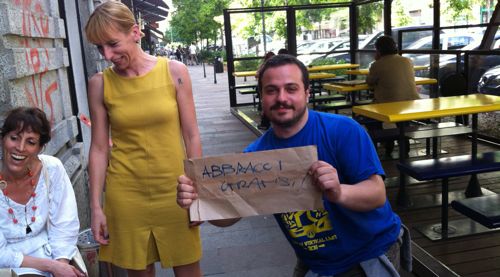 ABBRACCI
GRATIS!